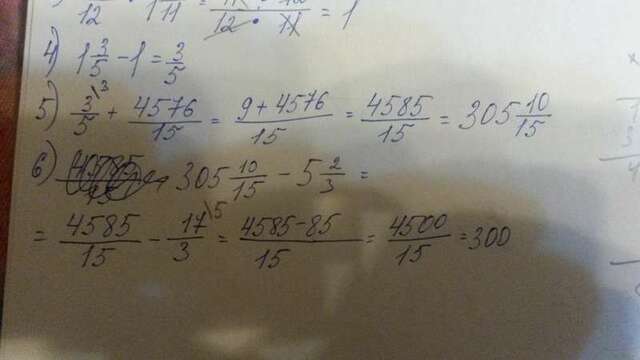 12 · 1 11 = 12 · 11 = 1
4) 1 3/5 - 1 = 3/5
5) 3\3/5 + 4576/15 = 9+4576/15 = 4585/15 = 305 10/15
6) 305 10/15 - 5 2/3 =
= 4585/15 - 17\5/3 = 4585-85/15 = 4500/15 = 300